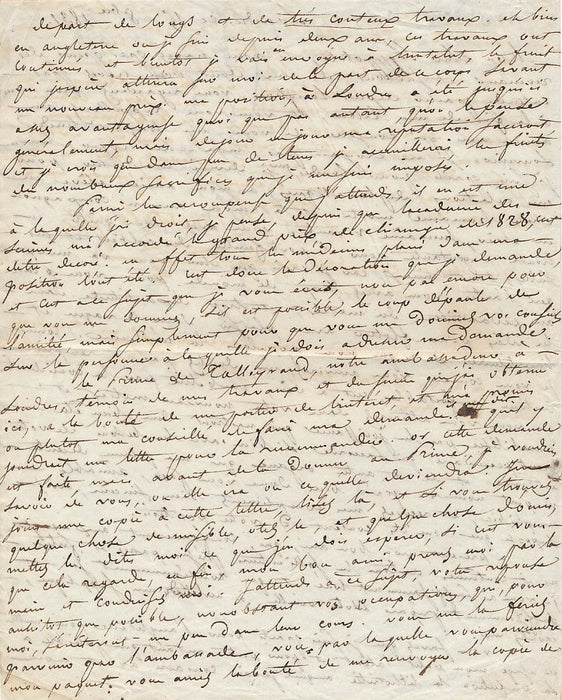 de part de longs et de très couteux travaux. eh bien
en angleterre où je suis depuis deux ans, ces travaux ont
continués et bientôt je vais envoyer à l'institut, le fruit
qui j'espère attirera sur moi de la part de ce corps savant
un nouveau prix. ma position, à Londres a été jusqu'ici
assez avantageuse quoi que pas autant qu'on le pense
généralement mais de jour en jour ma réputation s'accroit
et je crois que dans peu de tems je accueillerai les fruits
des nombreux sacrifices que je me suis imposés.
Parmi les recompenses que j'attends il en est une
à laquelle j'ai droit, je pense, depuis que l'académie des
sciences m'a accordé le grand prix de chirurgie de 1828, c'est
d'etre decoré. en effet tous les médecins placés dans ma
position l'ont été. c'est donc la décoration que je demande,
et c'est à ce sujet que je vous écris, non pas encore pour
que vous me donniez, s'il est possible, le coup d'épaule de
l'amitié mais simplement pour que vous me donniez vos conseils
sur la personne à laquelle je dois adresser ma demande.
le Prince de Talleyrand, notre ambassadeur à
Londres, témoin de mes travaux et du succès que j'ai obtenu
ici, a la bonté de me porter de l'interet et m'a promis
ou plutot m'a conseillé de faire ma demande qu'il y
joindrait une lettre pour la recommander. or cette demande
est faite mais avant de la donner au Prince, je voudrais
savoir de vous, où elle ira ce qu'elle deviendra
joins une copie à cette lettre, lisez la, et si vous trouvez
quelque chose de nuisible, otez le, et quelque chose de bon,
mettez le. dites moi ce que j'en dois espérer, si c'est vous
que cela regarde, enfin mon bon ami prenez moi par la
main et conduisez moi. j'attends à ce sujet, votre reponse
aussitot que possible, nonobstant vos occupations, qui, pour
moi, s'arreteront un peu dans leur cours. vous me la ferez
parvenir par l'ambassade, voie par laquelle vous parviendra
mon paquet. vous aurez la bonté de me renvoyer la copie de